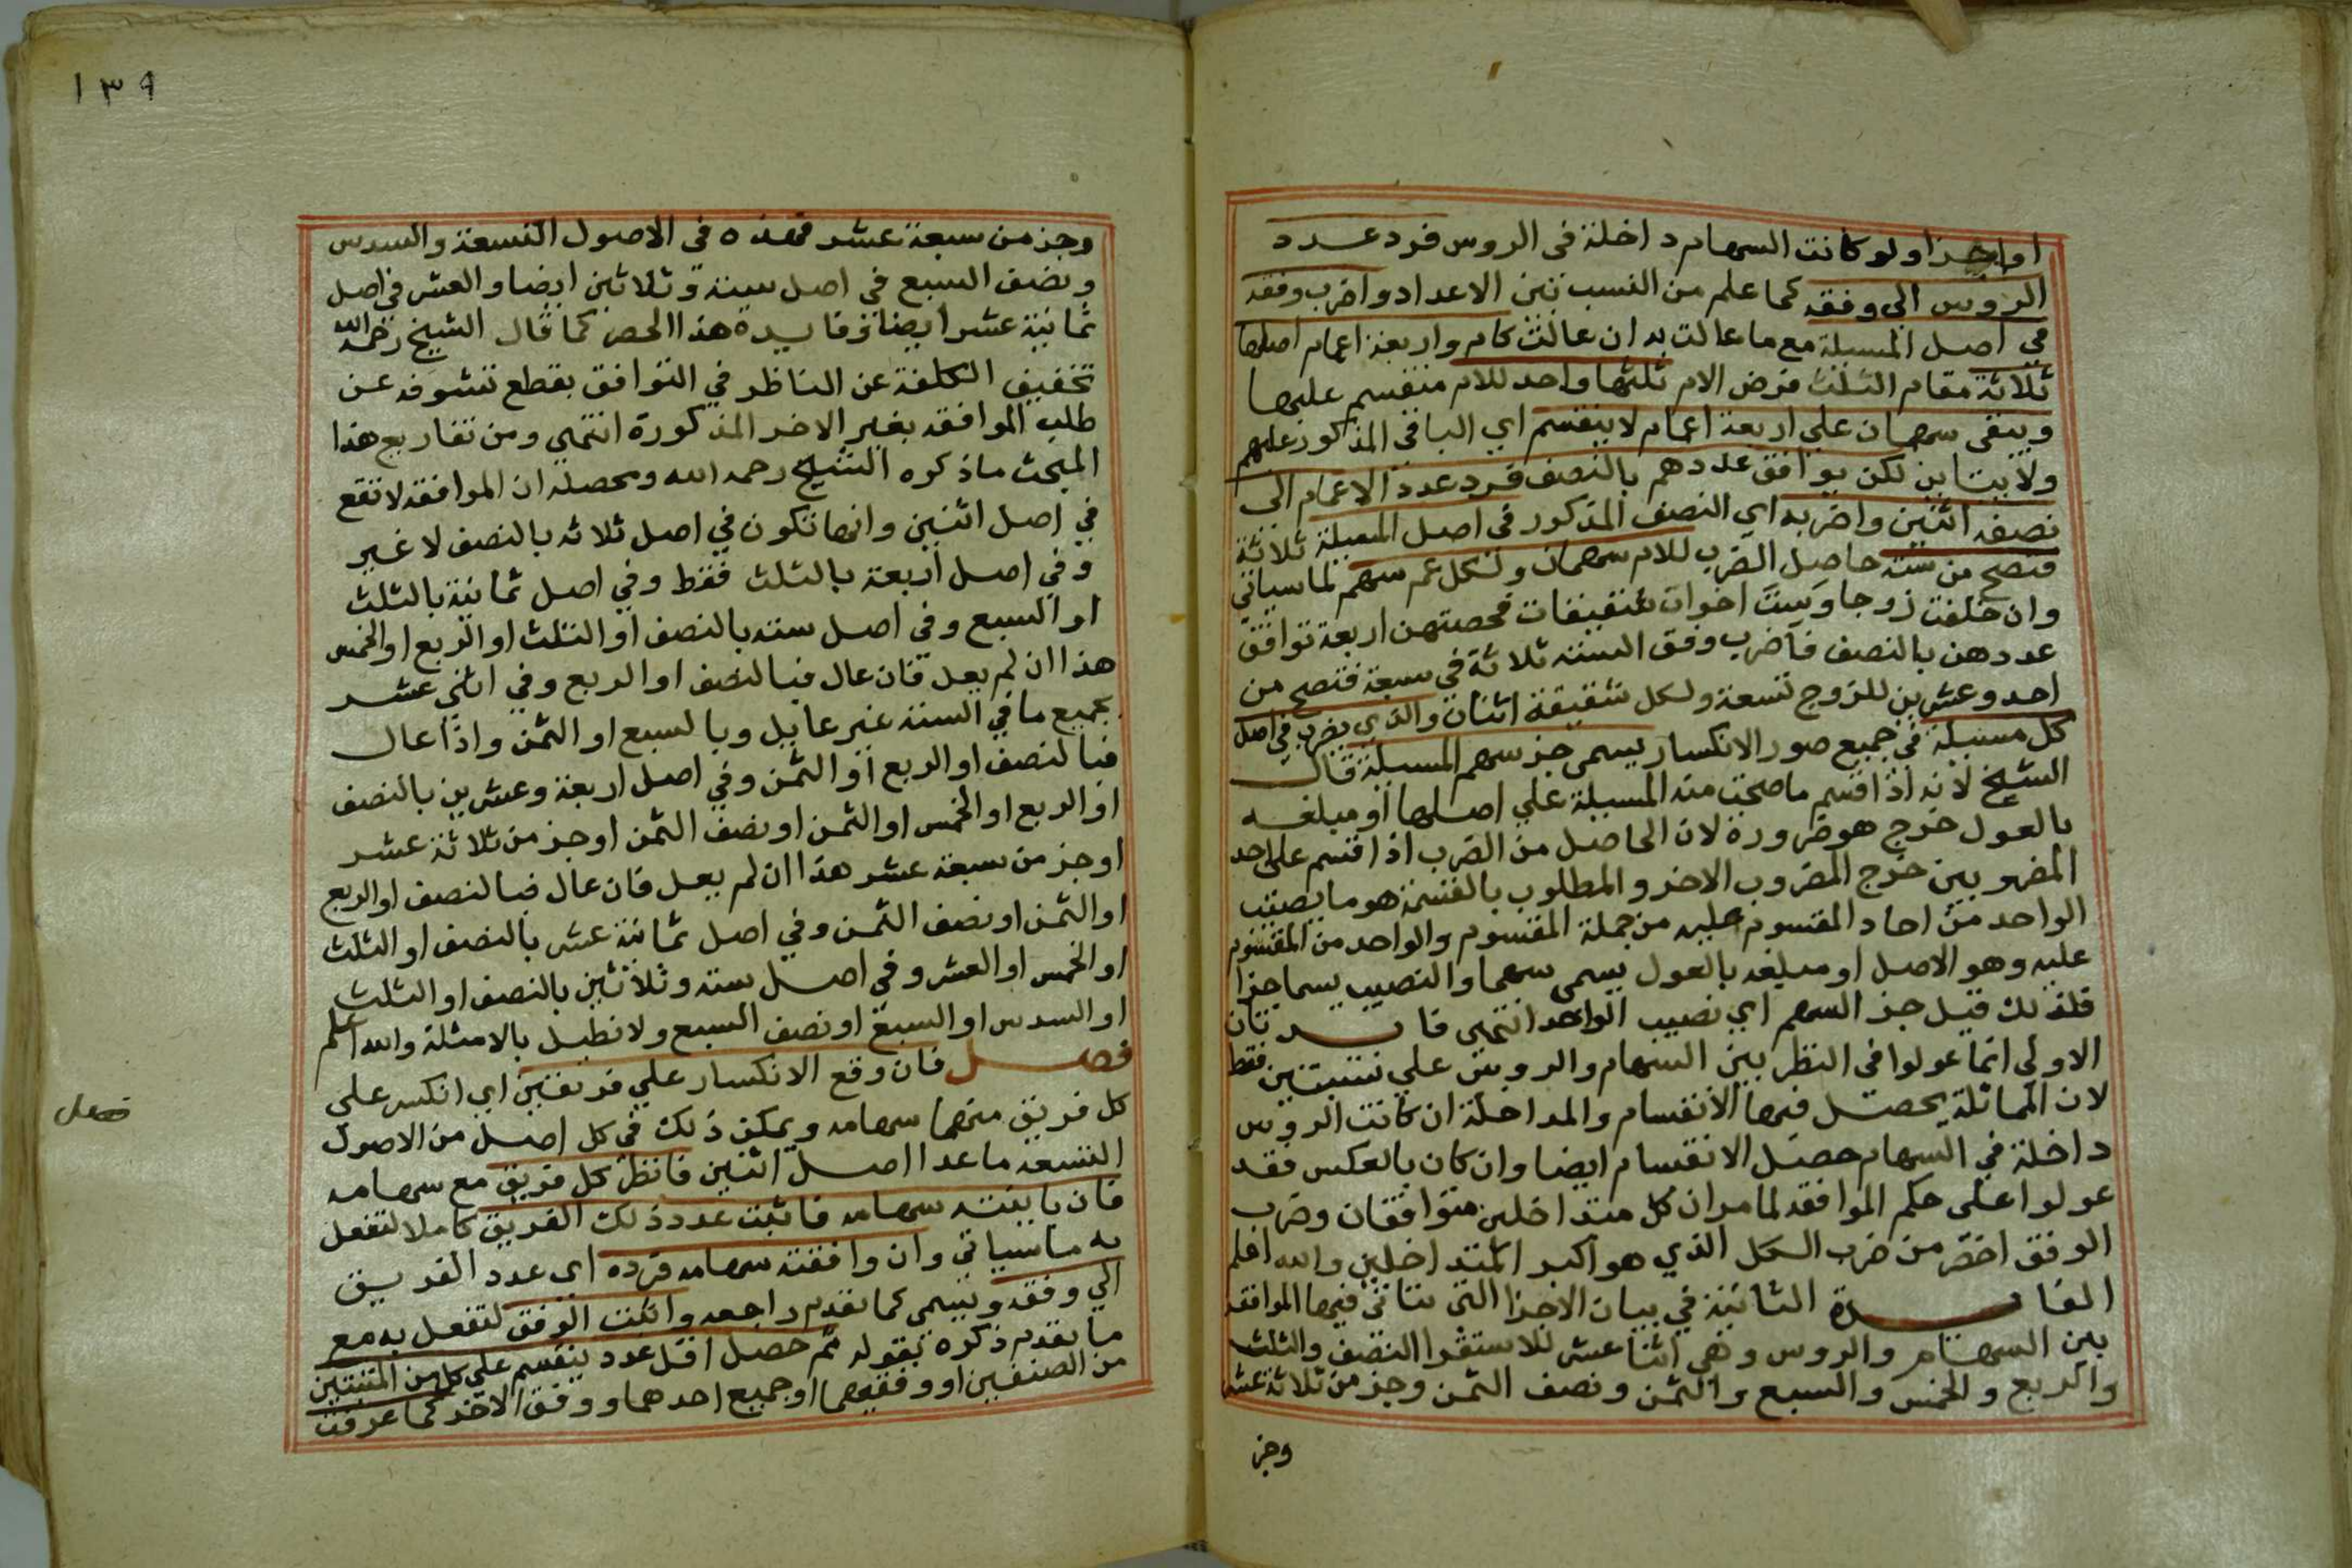 او اجزا ولو كانت السهام داخلة فى الروس فرد عدد
الروس الى وفقه كما علم من النسب بين الاعداد واضرب وفقه
في اصل المسيلة مع ما عالت به ان عالت كام واربعة اعمام اصلها
ثلاثة مقام الثلث فرض الام ثلثها واحد للام منقسم عليها
ويبقى سهمان على اربعة اعمام لا ينقسم اي الباقي المذكور عليهم
ولا يباين لكن يوافق عددهم بالنصف فرد عدد الاعمام الى
نصفه اثنين واضربه اي النصف المذكور فى اصل المسيلة ثلاثة
فتصح من ستة حاصل الضرب للام سهمان ولكل عم سهم لما سياتي
وان خلفت زوجا وست اخوات شقيقات فحصتهن اربعة توافق
عددهن بالنصف فاضرب وفق الستة ثلاثة في سبعة فتصح من
احد وعشرين للزوج تسعة ولكل شقيقة اثنان والذي يضرب في اصل
كل مسيلة في جميع صور الانكسار يسمى جز سهم المسيلة قال
الشيخ لانه اذا قسم ما صحت منه المسيلة على اصلها او مبلغه
بالعول خرج هو ضرورة لان الحاصل من الضرب اذا قسم على احد
المضروبين خرج المضروب الاخر والمطلوب بالقسمة هو ما يصيب
الواحد من احاد المقسوم عليه من جملة المقسوم والواحد من المقسوم
عليه وهو الاصل او مبلغه بالعول يسمى سهما والنصيب يسما جزا
فلذلك قيل جز السهم اي نصيب الواحد انتهى فايدتان
الاولى انما عولوا فى النظر بين السهام والروس على نسبتين فقط
لان المماثلة يحصل فيها الانقسام والمداخلة ان كانت الروس
داخلة في السهام حصل الانقسام ايضا وان كان بالعكس فقد
عولوا على حكم الموافقه لما مر ان كل متداخلين متوافقان وضرب
الوفق اخصر من ضرب الكل الذي هو اكبر المتداخلين والله اعلم
الفايدة الثانية في بيان الاجزا التى تتاتى فيها الموافقه
بين السهام والروس وهي اثنا عشر للاستقرا النصف والثلث
والربع والخمس والسبع والثمن ونصف الثمن وجز من ثلاثة عشر
وجز
١٣٩
وجز من سبعة عشر فهذه في الاصول التسعة والسدس
ونصف السبع في اصل ستة وثلاثين ايضا والعشر في اصل
ثمانية عشر ايضا وفايدة هذا الحصر كما قال الشيخ رحمه الله
تخفيف الكلفة عن الناظر في التوافق بقطع تشوفه عن
طلب الموافقه بغير الاخر المذكورة انتهى ومن تفاريع هذا
المبحث ما ذكره الشيخ رحمه الله ومحصله ان الموافقه لا تقع
في اصل اثنين وانها تكون في اصل ثلاثه بالنصف لا غير
وفي اصل اربعة بالثلث فقط وفي اصل ثمانية بالثلث
او السبع وفي اصل سته بالنصف او الثلث او الربع او الخمس
هذا ان لم يعل فان عال فبالنصف او الربع وفي اثني عشر
بجميع ما في الستة غير عايل وبالسبع او الثمن واذا عال
فبالنصف او الربع او الثمن وفي اصل اربعة وعشرين بالنصف
او الربع او الخمس او الثمن او نصف الثمن او جز من ثلاثة عشر
او جز من سبعة عشر هذا ان لم يعل فان عال فبالنصف او الربع
او الثمن او نصف الثمن وفي اصل ثمانية عشر بالنصف او الثلث
او الخمس او العشر وفي اصل ستة وثلاثين بالنصف او الثلث
او السدس او السبع او نصف السبع ولا نطيل بالامثلة والله اعلم
فصل فان وقع الانكسار على فريقين اي انكسر على
فصل
كل فريق منهما سهامه ويمكن ذلك في كل اصل من الاصول
التسعه ما عدا اصل اثنين فانظر كل فريق مع سهامه
فان باينته سهامه فاثبت عدد ذلك الفريق كاملا لتفعل
به ما سياتي وان وافقته سهامه فرده اي عدد الفريق
الي وفقه ويسمى كما تقدم راجعه واثبت الوفق لتفعل به مع
ما تقدم ذكره بقوله ثم حصل اقل عدد ينقسم على كل من المثبتين
من الصنفين او وفقيهما او جميع احدهما ووفق الاخر كما عرفت